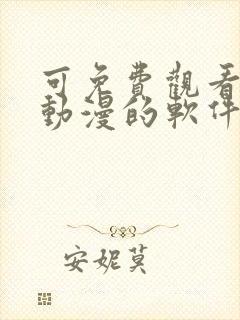 可免費觀看
動漫的軟件
安妮莫